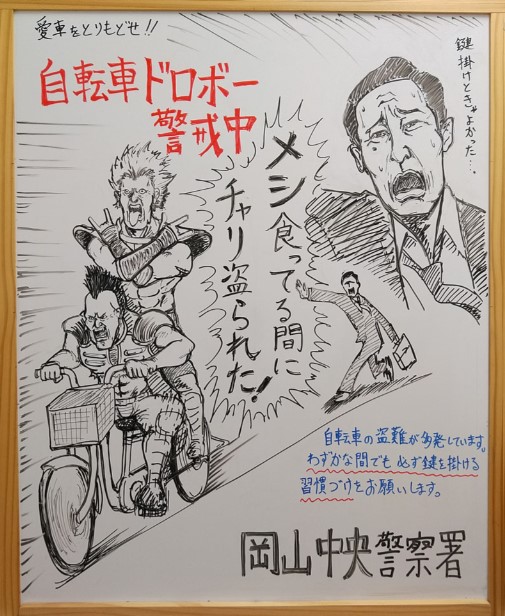 愛車をとりもどせ!!
自転車ドロボー
警戒中
鍵掛けときゃよかった…。
メシ食ってる間に
チャリ盗られた!
自転車の盗難が多発しています。
わずかな間でも必ず鍵を掛ける
習慣づけをお願いします。
岡山中央警察署